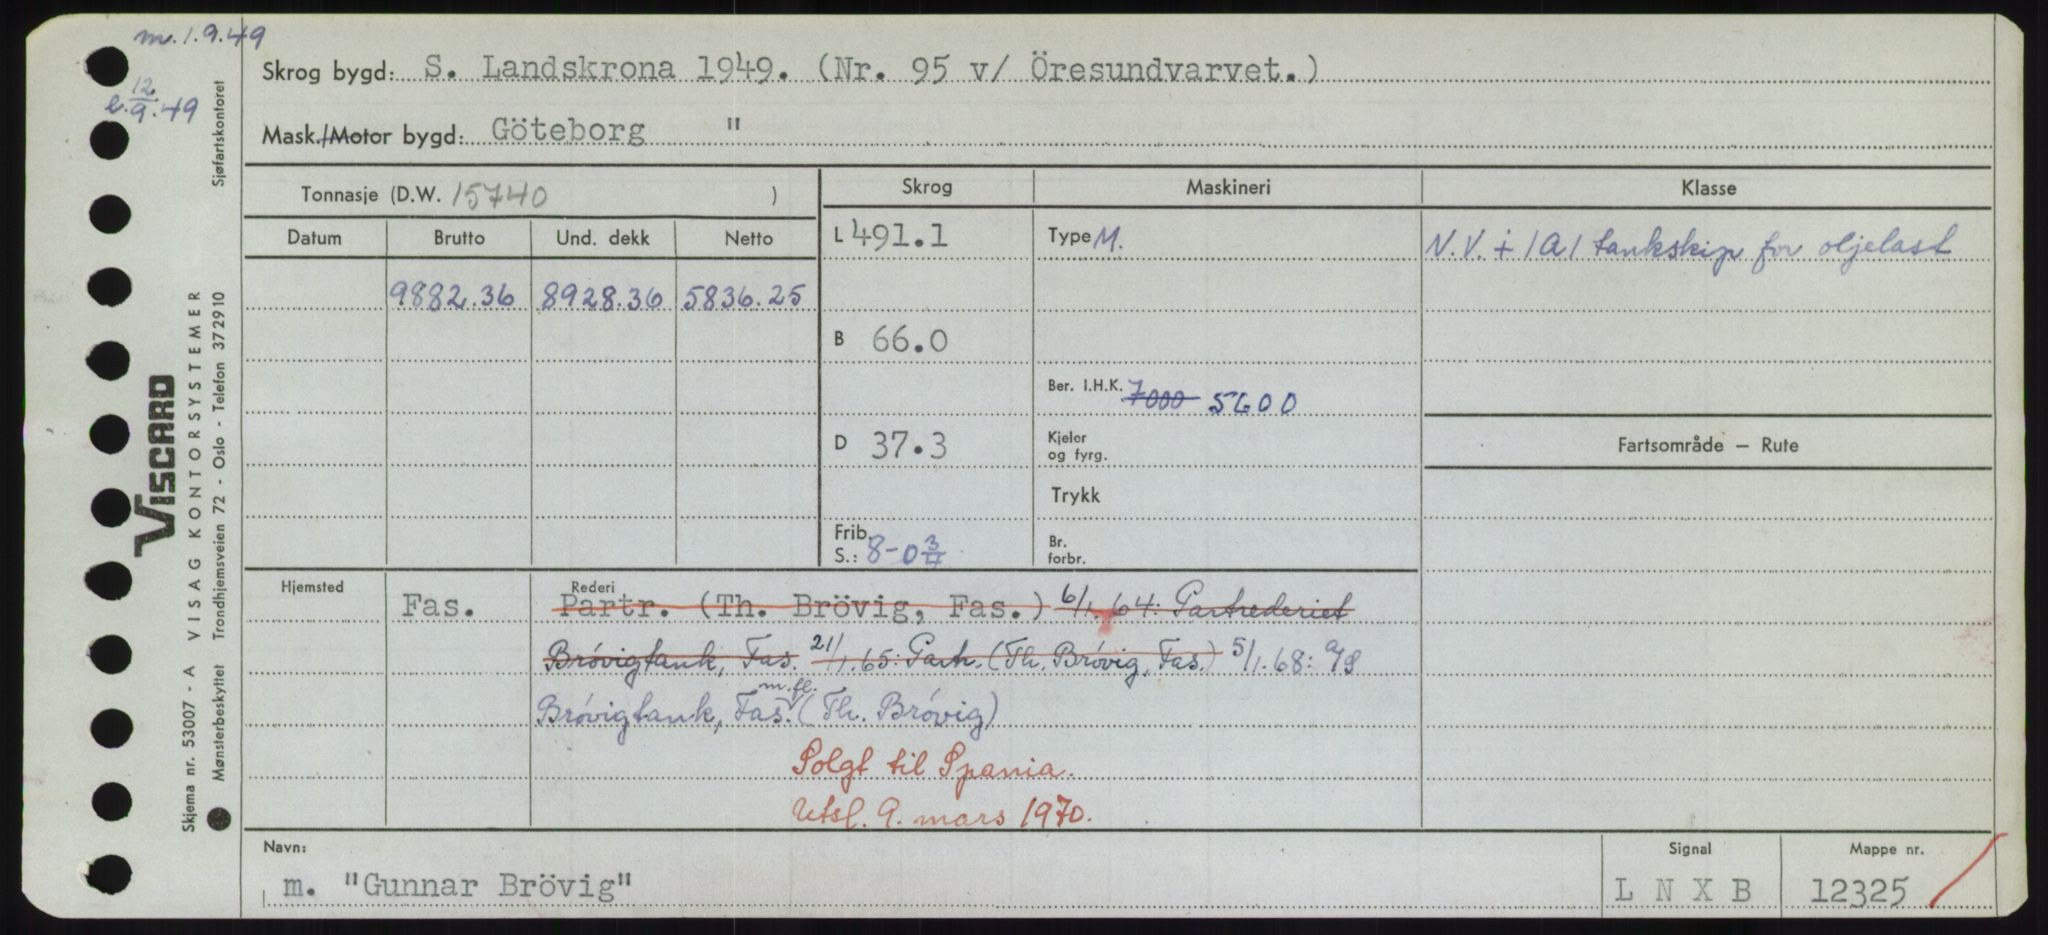 m. 1.9.49
e. 12/9.49
Skrog bygd: S. Landskrona 1949. (Nr. 95 v/ Öresundvarvet.)
Mask./Motor bygd: Göteborg "
Tonnasje (D.W. 15740 )
Datum Brutto Und. dekk Netto
9882.36 8928.36 5836.25
Skrog Maskineri Klasse
L 491.1 Type M. N.V. + 1A1 tankskip for oljelast
B 66.0
Ber. I.H.K. 7000 5600
D 37.3 Kjeler og fyrg. Fartsområde — Rute
Trykk
Frib. S.: 8-0 3/4 Br. forbr.
Hjemsted Rederi
Fas. Partr. (Th. Brövig, Fas.) 6/1.64: Partrederiet
Brövigtank, Fas. 21/1.65: Partr. (Th. Brövig, Fas.) 5/1.68: A/S
m.fl.
Brövigtank, Fas. (Th. Brövig)
Solgt til Spania.
Utsl. 9. mars 1970.
Navn: Signal Mappe nr.
m. "Gunnar Brövig" L N X B 12325
Skjema nr. 53007 - A VISAG KONTORSYSTEMER
VISCARD
Mønsterbeskyttet Trondhjemsveien 72 - Oslo - Telefon 372910 Sjøfartskontoret